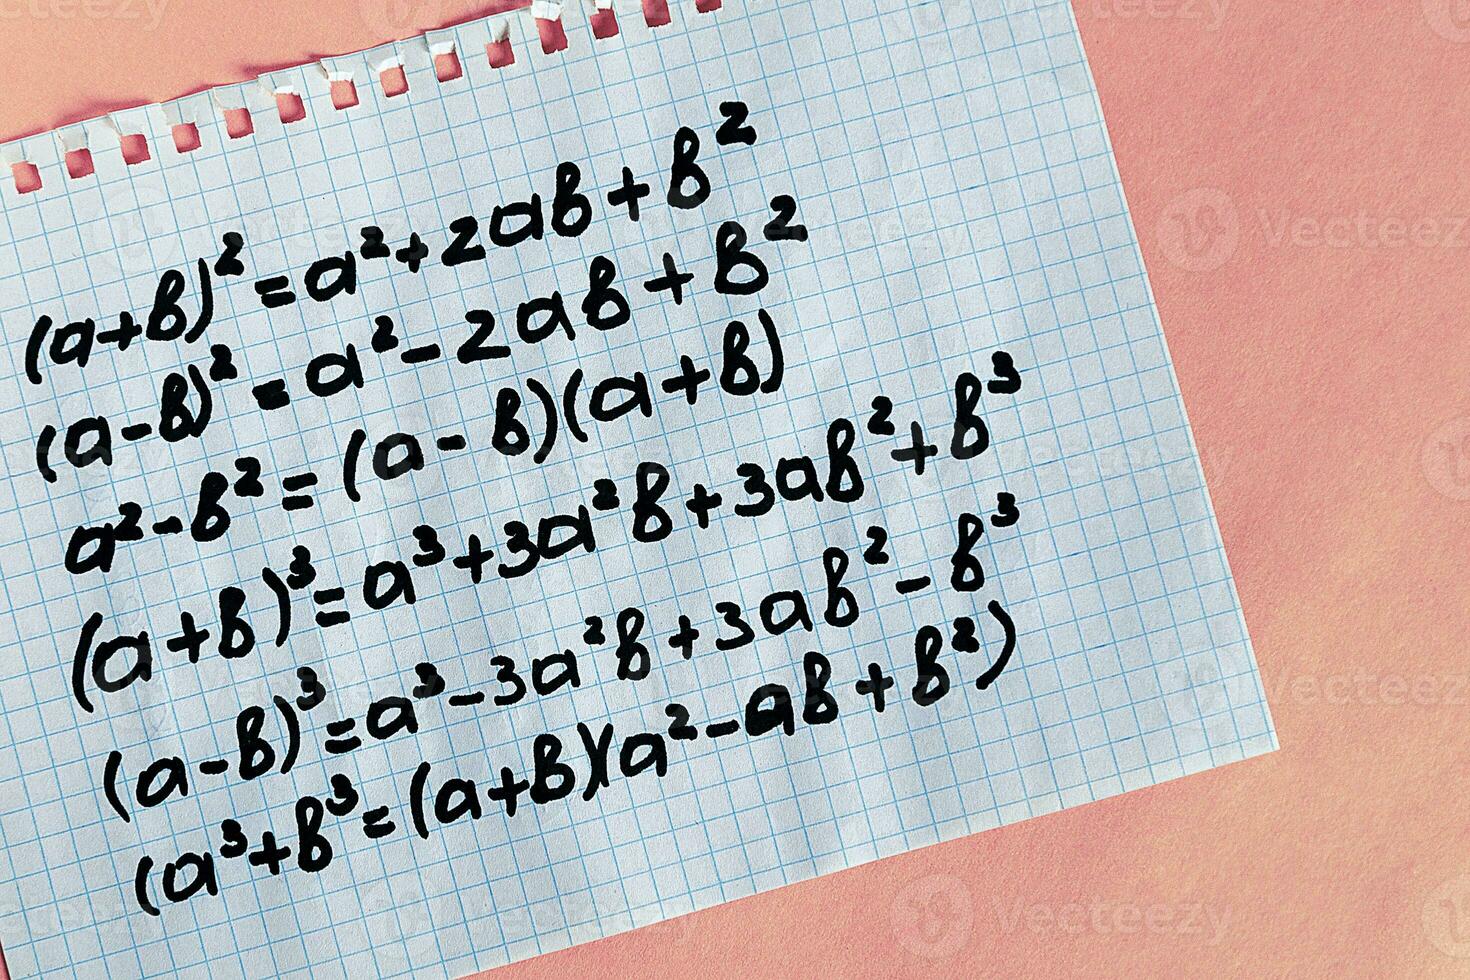 (a+b)²=a²+2ab+b²
(a-b)²=a²-2ab+b²
a²-b²=(a-b)(a+b)
(a+b)³=a³+3a²b+3ab²+b³
(a-b)³=a³-3a²b+3ab²-b³
(a³+b³=(a+b)(a²-ab+b²)
Vecteezy
Vecteezy
Vecteezy
Vecteezy